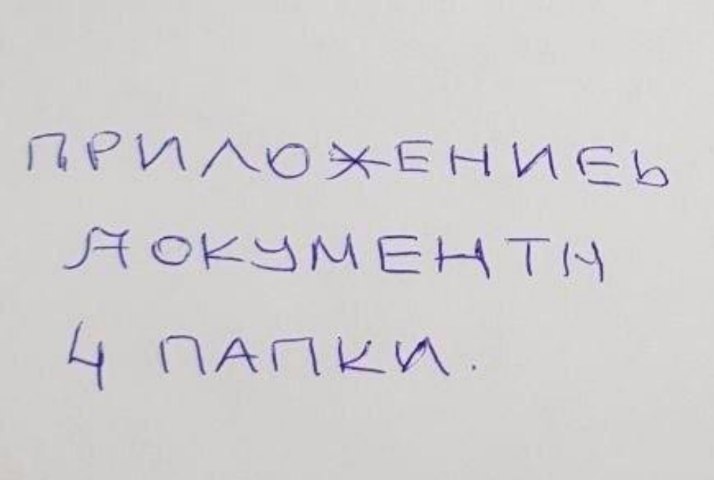 ПРИЛОЖЕНИЕЬ
ДОКУМЕНТИ
4 ПАПКИ.